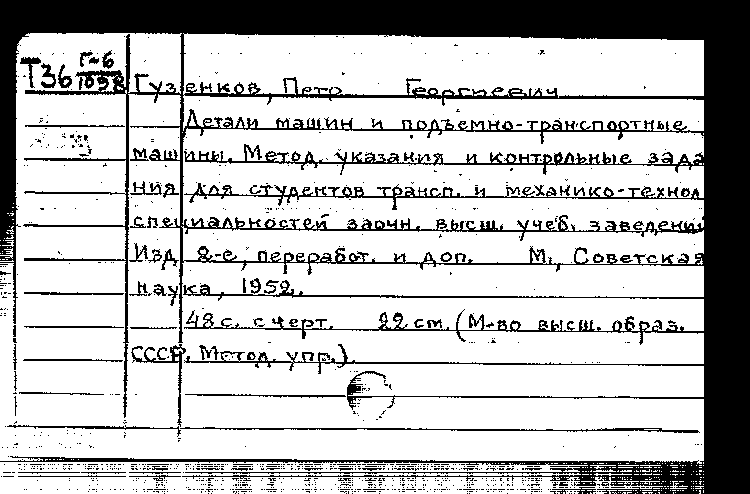 Т36 Г-6
1058
Гузенков, Петр Георгиевич
Детали машин и подъемно-транспортные
машины. Метод. указания и контрольные зада
ния для студентов трансп. и механико-технол
специальностей заочн. высш. учеб. заведений
Изд 2-е, переработ. и доп. М., Советская
наука, 1952.
48 с. с черт. 22 см. (М-во высш. образ.
СССР. Метод. упр.).